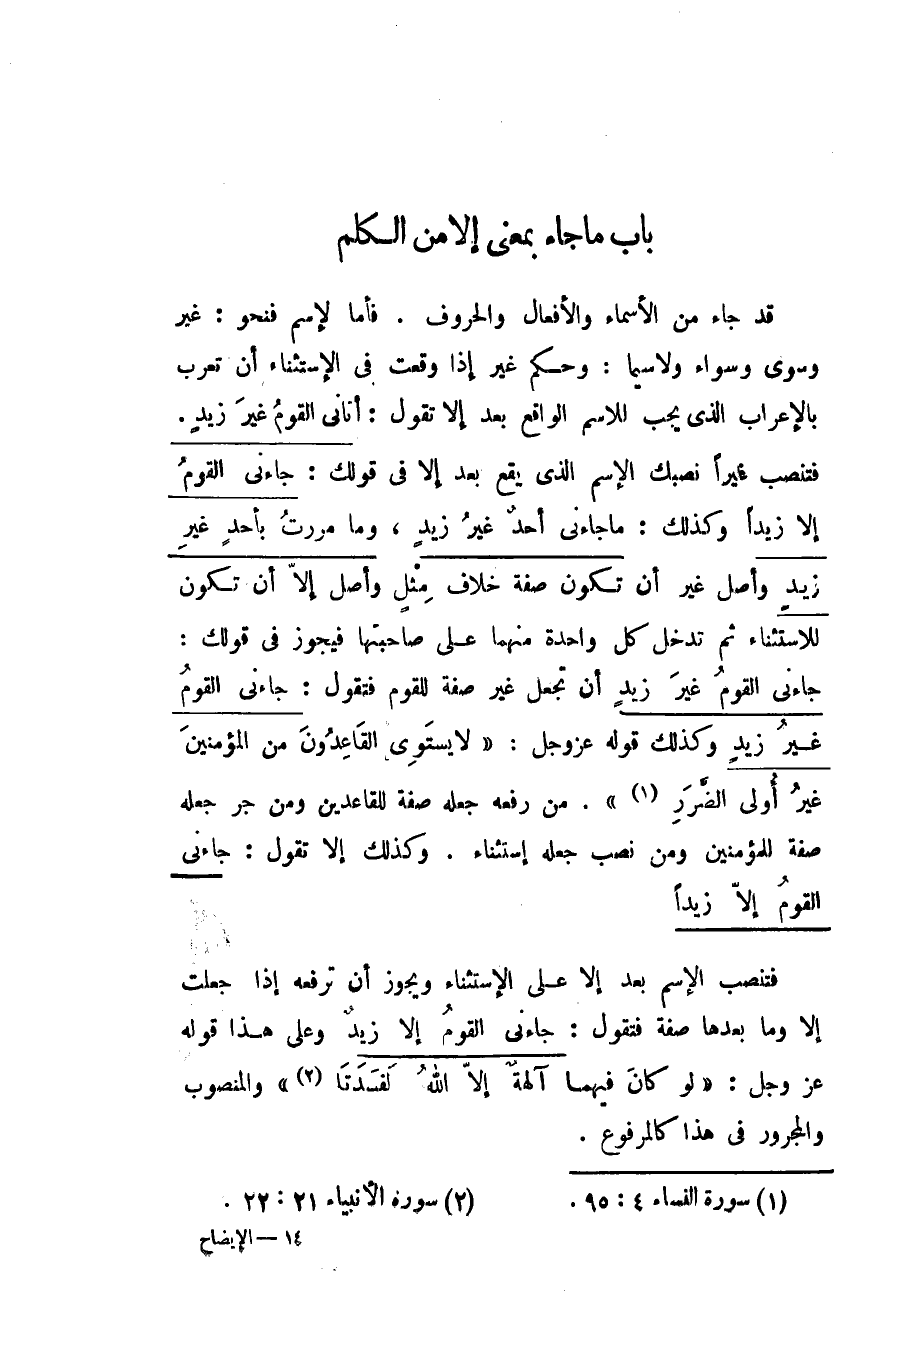 باب ما جاء بمعنى إلا من الكلم
قد جاء من الأسماء والأفعال والحروف . فأما لإسم فنحو : غير
وسوى وسواء ولاسيما : وحكم غير إذا وقعت فى الإستثناء أن تعرب
بالإعراب الذى يجب للاسم الواقع بعد إلا تقول : أتانى القومُ غيرَ زيدٍ .
فتنصب غيراً نصبك الإسم الذى يقع بعد إلا فى قولك : جاءنى القومُ
إلا زيداً وكذلك : ماجاءنى أحدٌ غيرُ زيدٍ ، وما مررتُ بأحدٍ غيرِ
زيدٍ وأصل غير أن تكون صفة خلاف مِثْلٍ وأصل إلاّ أن تكون
للاستثناء ثم تدخل كل واحدة منهما على صاحبتها فيجوز فى قولك :
جاءنى القومُ غيرَ زيدٍ أن تجعل غير صفة للقوم فتقول : جاءنى القومُ
غيرُ زيدٍ وكذلك قوله عزوجل : « لايستَوِى القَاعِدُونَ من المؤمنينَ
غيرُ أُولى الضَّرَرِ (١) » . من رفعه جعله صفة للقاعدين ومن جر جعله
صفة للمؤمنين ومن نصب جعله إستثناء . وكذلك إلا تقول : جاءنى
القومُ إلاّ زيداً
فتنصب الإسم بعد إلا على الإستثناء ويجوز أن ترفعه إذا جعلت
إلا وما بعدها صفة فتقول : جاءنى القومُ إلا زيدٌ وعلى هذا قوله
عز وجل : « لو كانَ فيهما آلهةٌ إلاّ اللهُ لَفَسَدَتَا (٢) » والمنصوب
والمجرور فى هذا كالمرفوع .
(١) سورة النساء ٤ : ٩٥ . (٢) سورة الأنبياء ٢١ : ٢٢ .
١٤ — الإيضاح